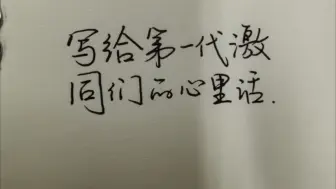 写给第一代激
同们的心里话.